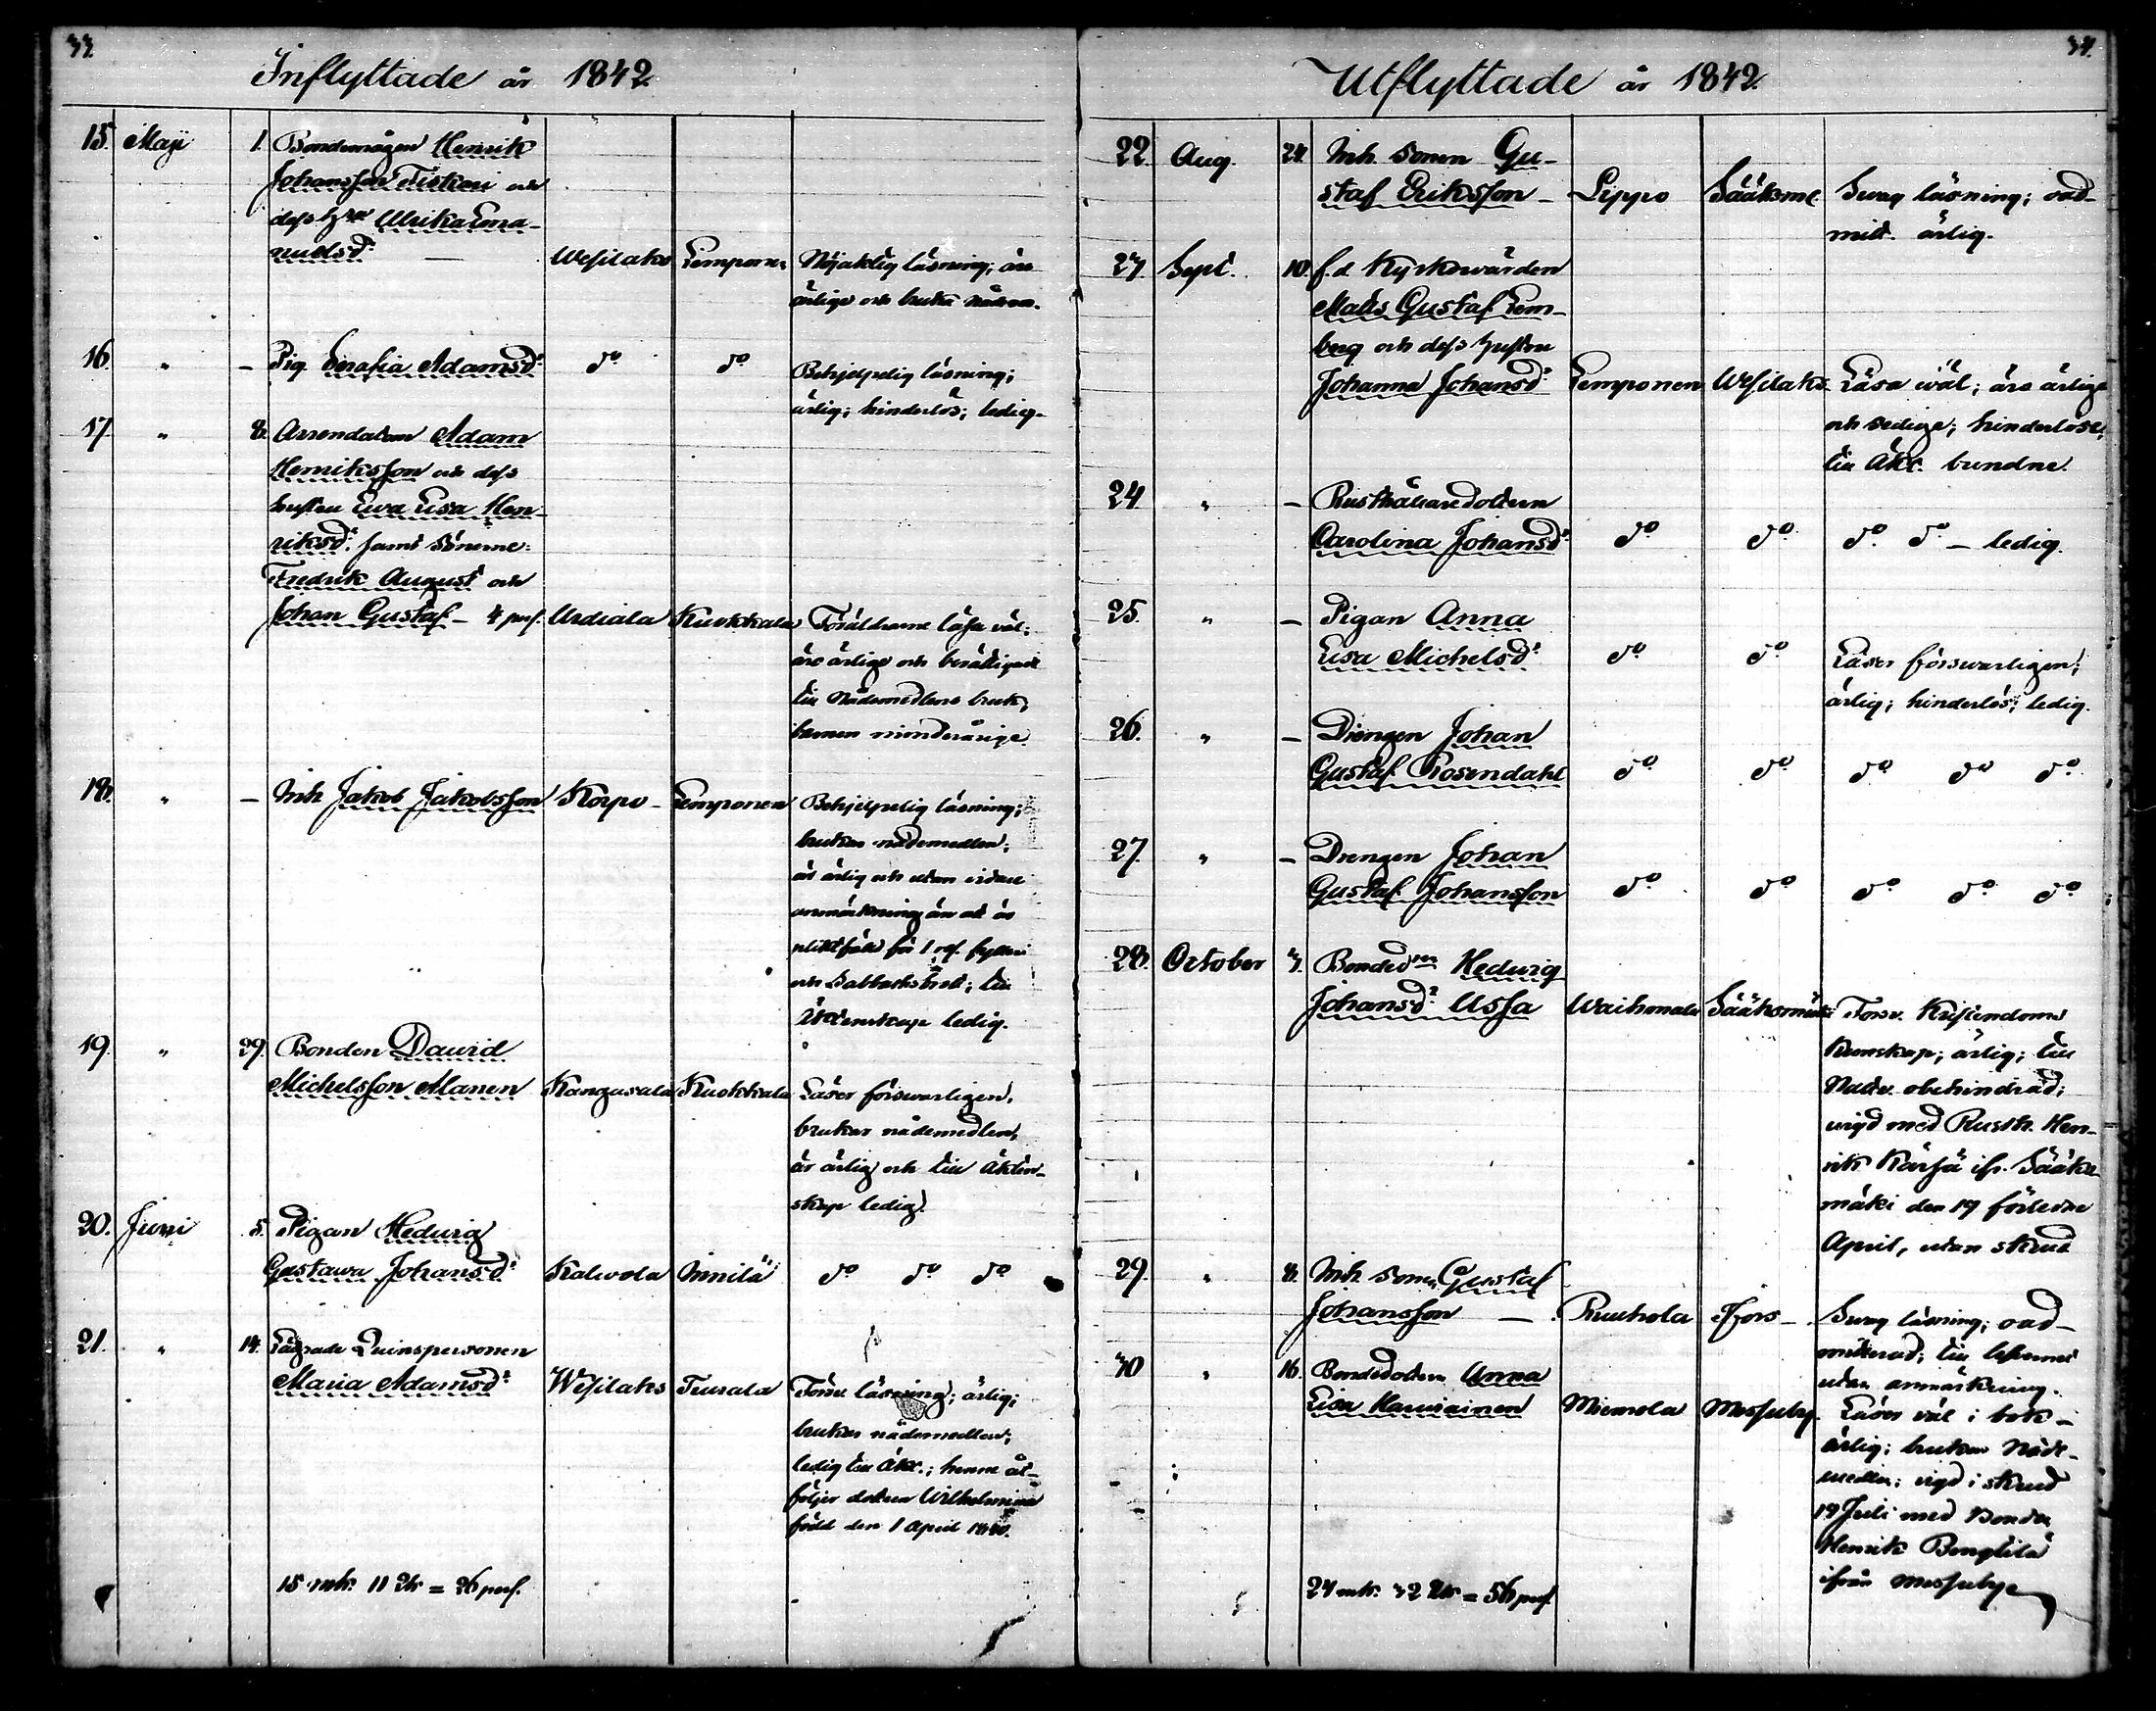 33.
Inflyttade år 1842
15. Maji 1. Bondemågen Henrik
Johansson Tiskari och
dess h:u Ulrika Ema-
nuelsd:r — Wesilaks Lemponen Nöjaktig läsning; äro
ärlige och bruka nådem.
16. " - Pig. Serafia Adamsd:r d:o d:o Behjelpelig läsning;
ärlig; hinderlös; ledig.
17. " 8. Arrendatorn Adam
Henriksson och dess
hustru Ewa Lisa Hen-
riksd:r samt sönerne:
Fredrik August och
Johan Gustaf - 4 pers. Urdiala Kuokkala Föräldrarne läsa väl;
äro ärlige och berättigade
till Nådemedlens bruk;
barnen minderårige.
18. " - Inh. Jakob Jakobsson Korpo - Lemponen Behjelpelig läsning;
brukar nådemedlen;
är ärlig och utan vidare
anmärkning än att är
pliktfäld för 1 res. fylleri
och Sabbathsbrott; till
Äktenskap ledig.
19. " 29. Bonden Dawid
Michelsson Manen Kangasala Kuokkala Läser förswarligen,
brukar nådemedlen,
är ärlig och till äkten-
skap ledig.
20. Juni 5. Pigan Hedwig
Gustawa Johansd:r Kalwola Innilä d:o d:o d:o
21. " 14. Lägrade Qwinspersonen
Maria Adamsd:r Wesilaks Teurala Försv. läsning; ärlig;
brukar nådemedlen;
ledig till Äkt.; henne åt-
följer dottren Wilhelmina
född den 1 April 1840.
15 mk. 11 Qk = 26 pers.
34.
Utflyttade år 1842.
22. Aug. 24. Inh. sonen Gu-
staf Eriksson - Lippo Sääksm. Swag läsning; oad-
mitt. ärlig.
23. Sept. 10. f.d. Kyrkowärden
Matts Gustaf Lem-
berg och dess hustru
Johanna Johansd:r Lemponen Wesilaks. Läsa wäl; äro ärlige
och sedige; hinderlöse;
till Äkt. bundne.
24. " - Rusthållaredottern
Carolina Johansd:r d:o d:o d:o d:o - ledig.
25. " - Pigan Anna
Lisa Michelsd:r d:o d:o Läser förswarligen;
ärlig; hinderlös; ledig.
26. " - Drengen Johan
Gustaf Rosendahl d:o d:o d:o d:o d:o
27. " - Drengen Johan
Gustaf Johansson d:o d:o d:o d:o d:o
28. October 3. Bonded:ren Hedwig
Johansd:r Ussa Waihmala Sääksmäki Försv. Kristendoms
Kunskap; ärlig; till
Nattv. obehindrad;
wigd med Rusth. Hen-
rik Kärjä ifr. Sääks-
mäki den 19 förledne
April, utan skrud
29. " 8. Inh. sonen Gustaf
Johansson — Ruuhola Tfors - Swag läsning; oad-
mitterad; till lefvernet
utan anmärkning.
30 " 16. Bondedottren Anna
Lisa Harwiainen Miemola Messuby. Läser väl i bok -
ärlig; brukar Nåde-
medlen; vigd i skrud
19 Juli med Bonden
Henrik Bengtilä
ifrån Messuby
24 mk. 32 Qk = 56 pers.